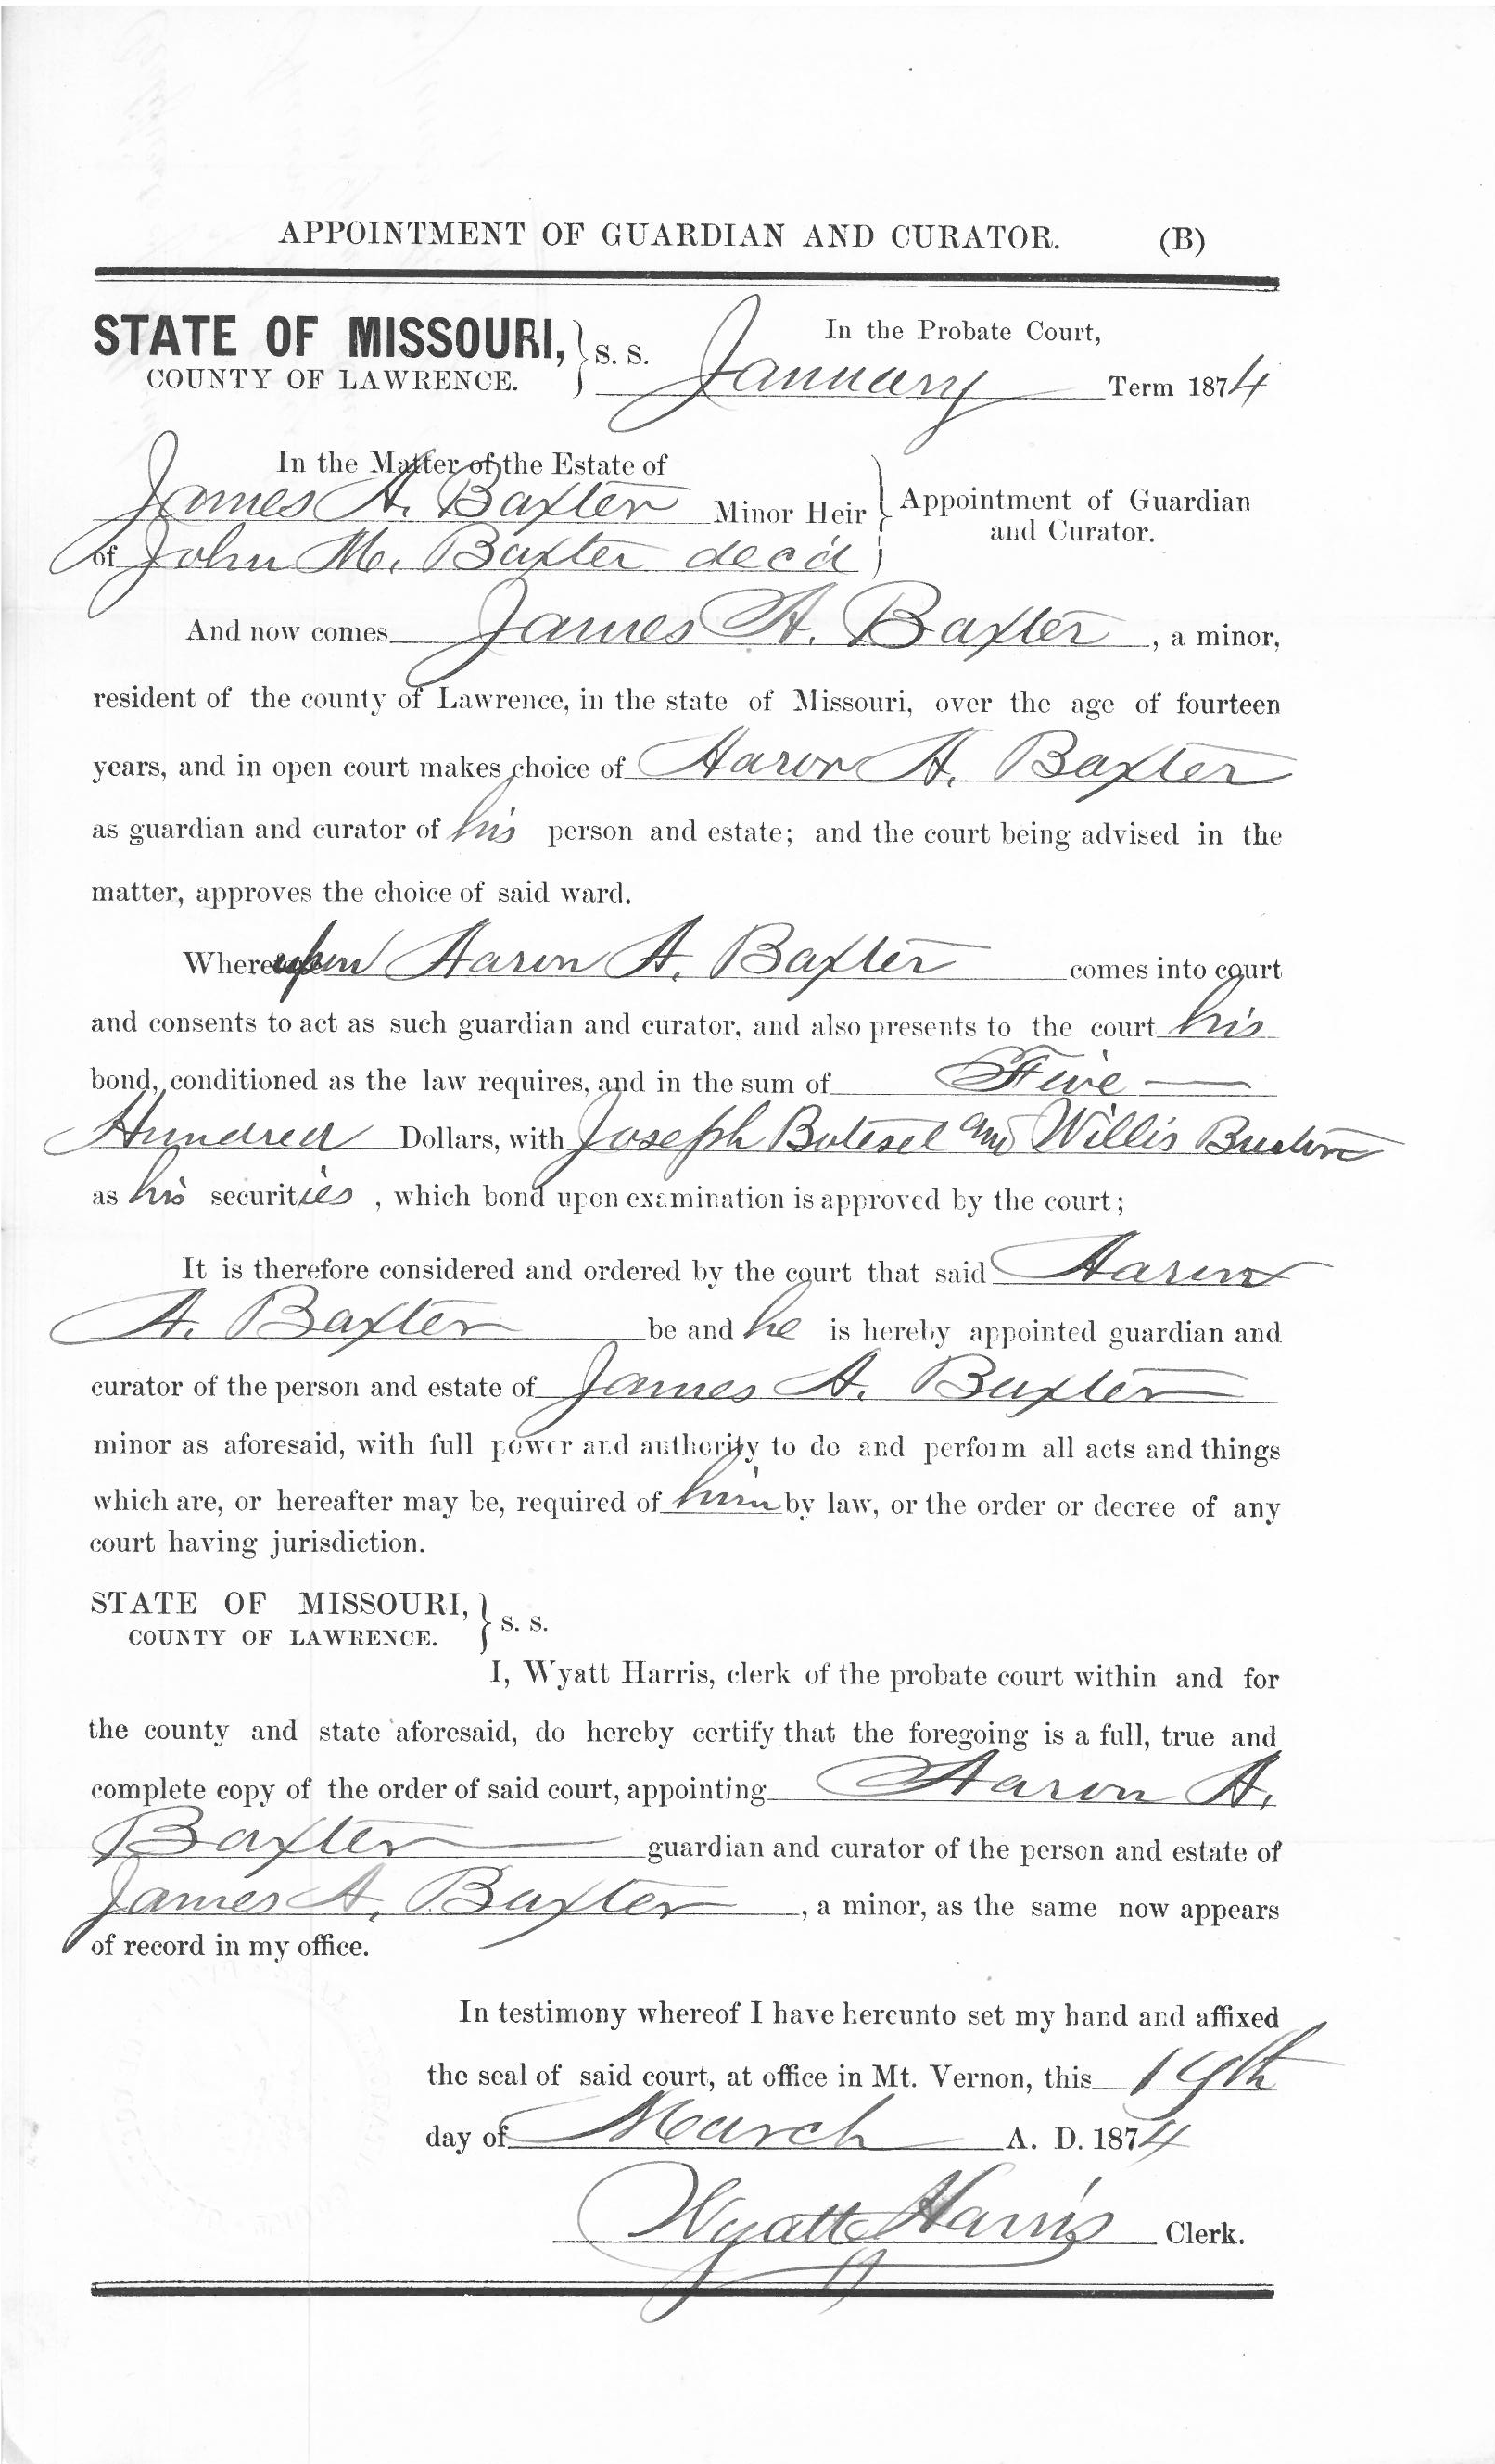 APPOINTMENT OF GUARDIAN AND CURATOR. (B)
STATE OF MISSOURI, } S. S. In the Probate Court,
COUNTY OF LAWRENCE. January Term 1874
In the Matter of the Estate of
James A. Baxter Minor Heir } Appointment of Guardian
of John M. Baxter dec'd and Curator.
And now comes James A. Baxter, a minor,
resident of the county of Lawrence, in the state of Missouri, over the age of fourteen
years, and in open court makes choice of Aaron A. Baxter
as guardian and curator of his person and estate; and the court being advised in the
matter, approves the choice of said ward.
Whereupon Aaron A. Baxter comes into court
and consents to act as such guardian and curator, and also presents to the court his
bond, conditioned as the law requires, and in the sum of Five
Hundred Dollars, with Joseph and Willis
as his securities, which bond upon examination is approved by the court;
It is therefore considered and ordered by the court that said Aaron
A. Baxter be and he is hereby appointed guardian and
curator of the person and estate of James A. Baxter
minor as aforesaid, with full power and authority to do and perform all acts and things
which are, or hereafter may be, required of him by law, or the order or decree of any
court having jurisdiction.
STATE OF MISSOURI, } S. S.
COUNTY OF LAWRENCE.
I, Wyatt Harris, clerk of the probate court within and for
the county and state aforesaid, do hereby certify that the foregoing is a full, true and
complete copy of the order of said court, appointing Aaron A.
Baxter guardian and curator of the person and estate of
James A. Baxter, a minor, as the same now appears
of record in my office.
In testimony whereof I have hereunto set my hand and affixed
the seal of said court, at office in Mt. Vernon, this 19th
day of March A. D. 1874
Wyatt Harris Clerk.